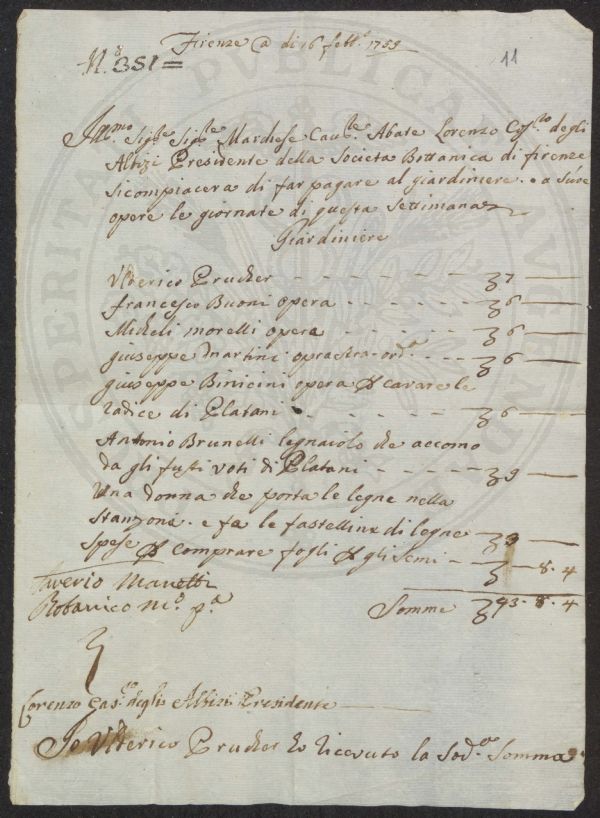 Firenze @ di 16 febb.º 1759
N.º 351=
11
Ill.mo Sig.re Sig.re Marchese Cav.re Abate Lorenzo Gas.ro degli
Albizi Presidente della Societa Bottanica di firenze
si compiacera di far pagare al giardiniere. e a Sue
opere le giornate di questa Settimana
Giardiniere
Ulderico Prucker - - - - - - - - 7 —
francesco Buoni opera - - - - - - 6 —
Micheli morelli opera - - - - - - 6 —
giuseppe Martini opra stra-ord.a - - - 6 —
giuseppe Binicini opera p cavare le
radice di Platani - - - - - - 6 —
Antonio Brunelli legnaiolo che accomo
da gli fusti voti di Platani - - - - 9 —
Una donna che porta le legne nella
Stanzona. e fa le fastelline di legne - 3 —
Spese p comprare fogli p gli Semi - — . 8 . 4
Saverio Manetti
Botanico m.º p.a
Somme 43 . 8 . 4
Lorenzo Gas.ro degli Albizi Presidente
Io Ulderico Prucker ho ricevuto la Sod.a Somma
PERICULA PUBLICAE AUGENDI